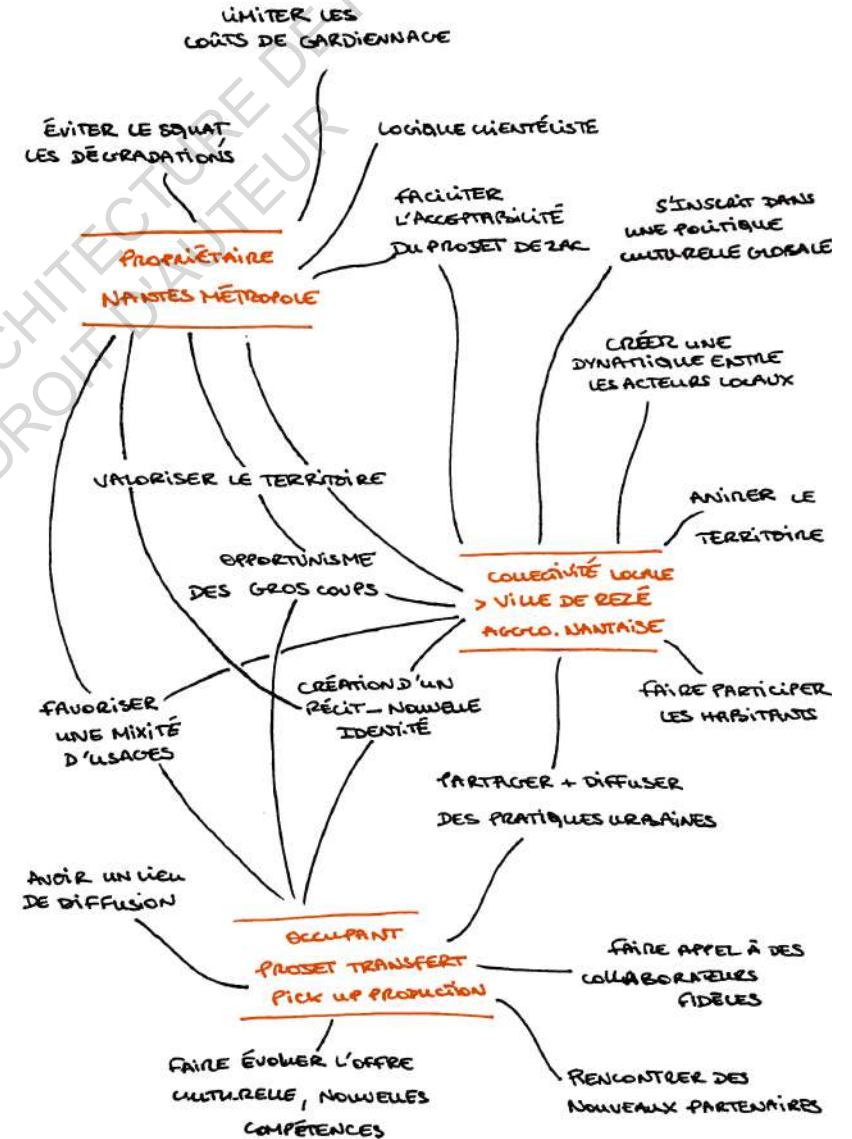 LIMITER LES
COÛTS DE GARDIENNAGE
ÉVITER LE SQUAT
LES DÉGRADATIONS
LOGIQUE CLIENTÉLISTE
FACILITER
L'ACCEPTABILITÉ
DU PROJET DE ZAC
S'INSCRIT DANS
UNE POLITIQUE
CULTURELLE GLOBALE
PROPRIÉTAIRE
NANTES MÉTROPOLE
CRÉER UNE
DYNAMIQUE ENTRE
LES ACTEURS LOCAUX
VALORISER LE TERRITOIRE
ANIMER LE
TERRITOIRE
OPPORTUNISME
DES GROS COUPS
COLLECTIVITÉ LOCALE
> VILLE DE REZÉ
AGGLO. NANTAISE
FAVORISER
UNE MIXITÉ
D'USAGES
CRÉATION D'UN
RÉCIT_ NOUVELLE
IDENTITÉ
FAIRE PARTICIPER
LES HABITANTS
PARTAGER + DIFFUSER
DES PRATIQUES URBAINES
AVOIR UN LIEU
DE DIFFUSION
OCCUPANT
PROJET TRANSFERT
PICK UP PRODUCTION
FAIRE APPEL À DES
COLLABORATEURS
FIDÈLES
FAIRE ÉVOLUER L'OFFRE
CULTURELLE, NOUVELLES
COMPÉTENCES
RENCONTRER DES
NOUVEAUX PARTENAIRES
CHITECTURE DE
DROIT D'AUTEUR